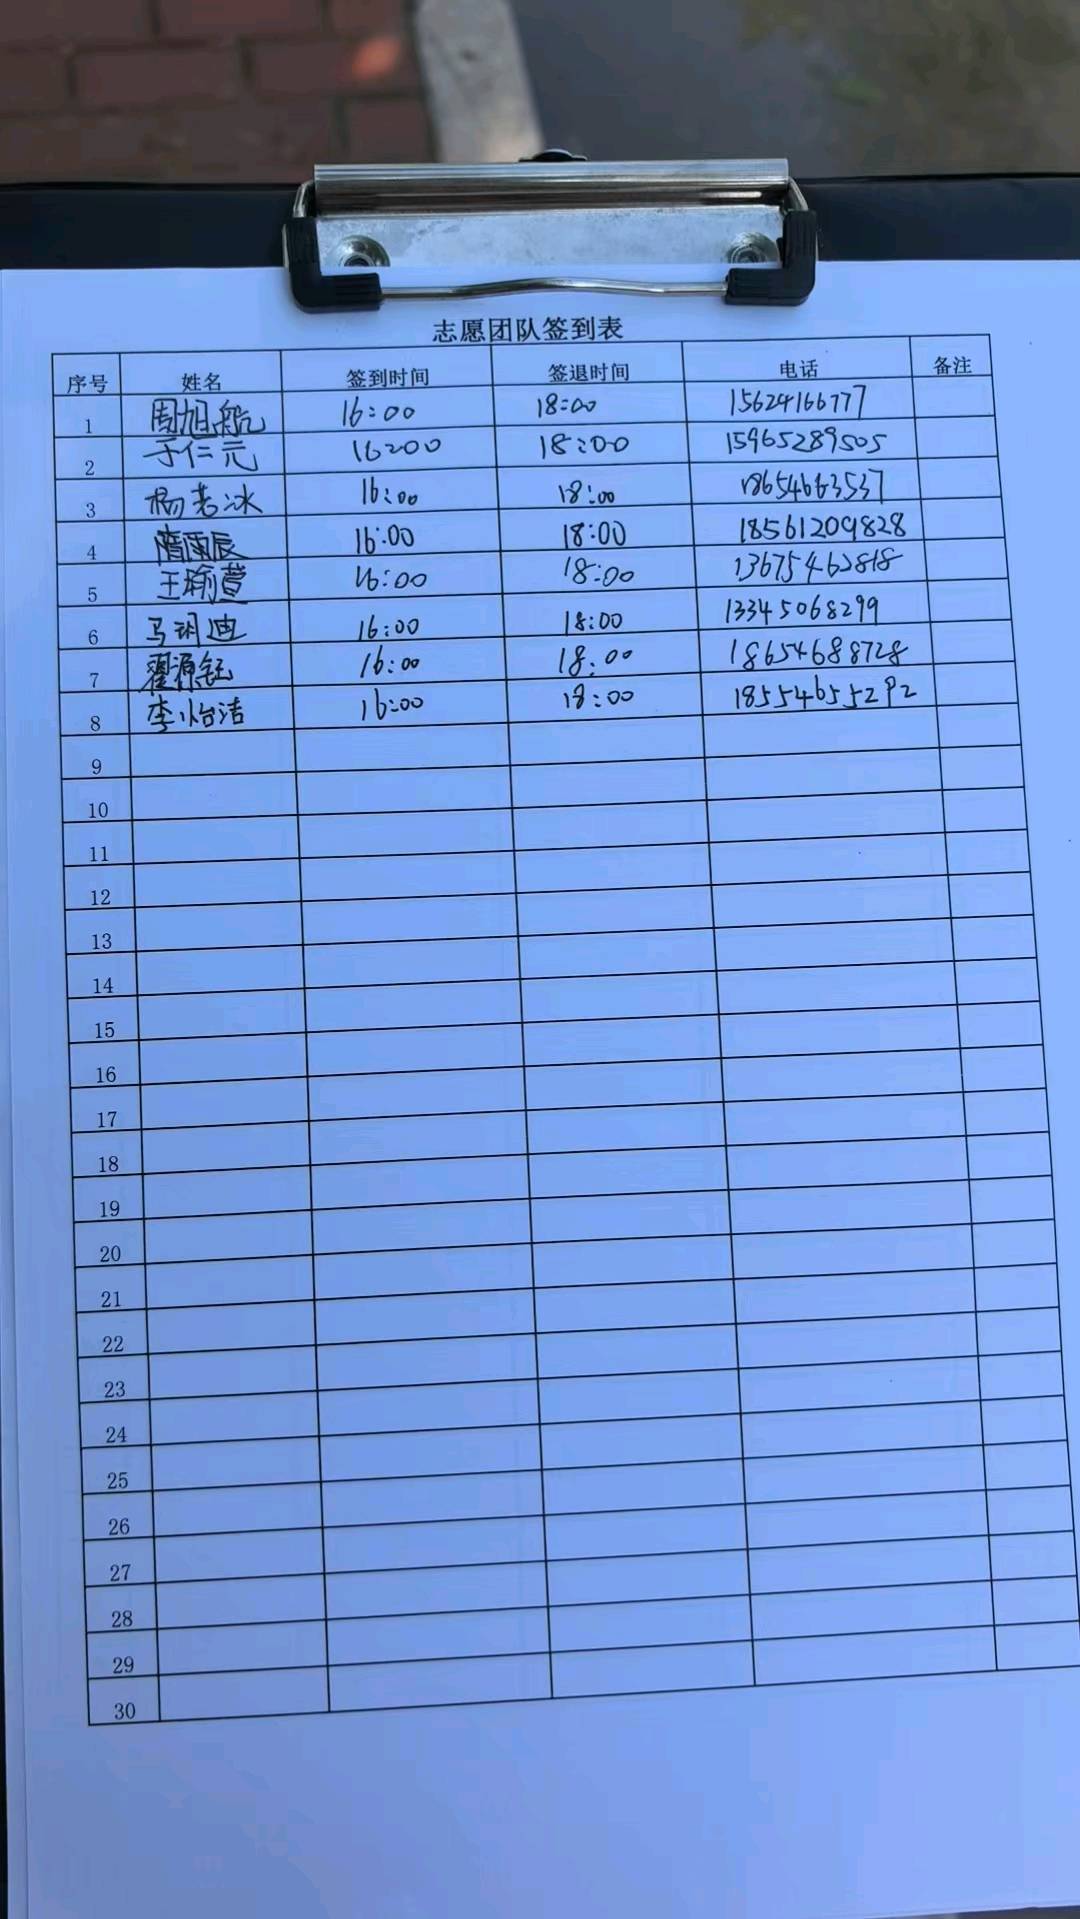 志愿团队签到表
序号 姓名 签到时间 签退时间 电话 备注
1 周旭航 16:00 18:00 15624166777
2 于仁元 16:00 18:00 15965289505
3 杨若冰 16:00 18:00 18654663537
4 隋雨辰 16:00 18:00 18561209828
5 王瀚萱 16:00 18:00 13675462818
6 马玥迪 16:00 18:00 13345068299
7 翟源钰 16:00 18:00 18654688728
8 李怡洁 16:00 18:00 18554655292
9
10
11
12
13
14
15
16
17
18
19
20
21
22
23
24
25
26
27
28
29
30